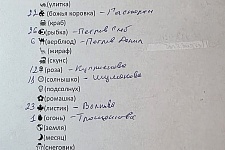 🐌(улитка)
22 🐞(божья коровка) -
🦀(краб)
26 🐟(рыбка) - Петров Глеб
6 🐫(верблюд) - Петров Данил
🦒(жираф)
🦨(скунс)
12 🌹(роза) - Куприянова
18 🌞(солнышко) - Шумакова
🌻(подсолнух)
🌼(ромашка)
23 🍁(листик) - Волкова
1 🔥(огонь) - Трошенкова
🌎(земля)
🌙(месяц)
⛄(снеговик)